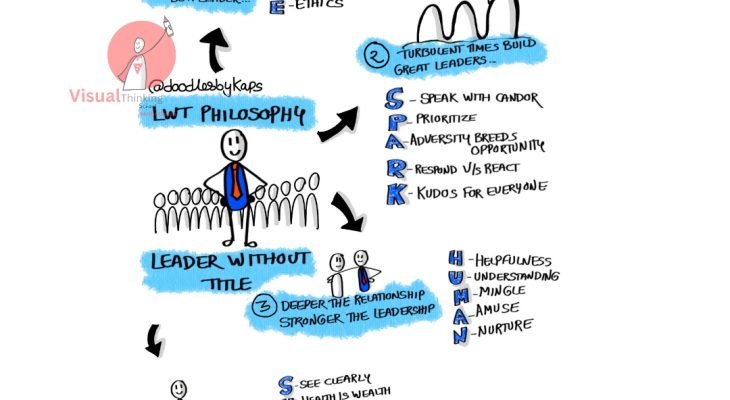 E - ETHICS
Visual Thinking
@doodlesbykaps
LWT PHILOSOPHY
LEADER WITHOUT
TITLE
2 TURBULENT TIMES BUILD
GREAT LEADERS...
S - SPEAK WITH CANDOR
P - PRIORITIZE
A - ADVERSITY BREEDS
OPPORTUNITY
R - RESPOND V/S REACT
K - KUDOS FOR EVERYONE
3 DEEPER THE RELATIONSHIP
STRONGER THE LEADERSHIP
H - HELPFULNESS
U - UNDERSTANDING
M - MINGLE
A - AMUSE
N - NURTURE
S - SEE CLEARLY
HEALTH IS WEALTH